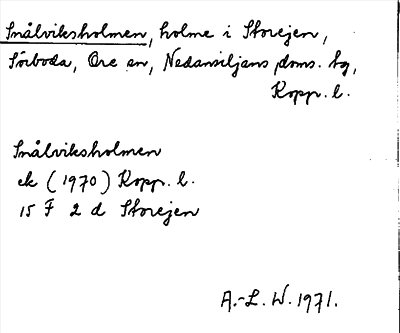 Snålviksholmen, holme i Storejen,
Sörboda, Ore sn, Nedansiljans doms. tg,
Kopp. l.
Snålviksholmen
ek (1970) Kopp. l.
15 F 2 d Storejen
A.-L. W. 1971.